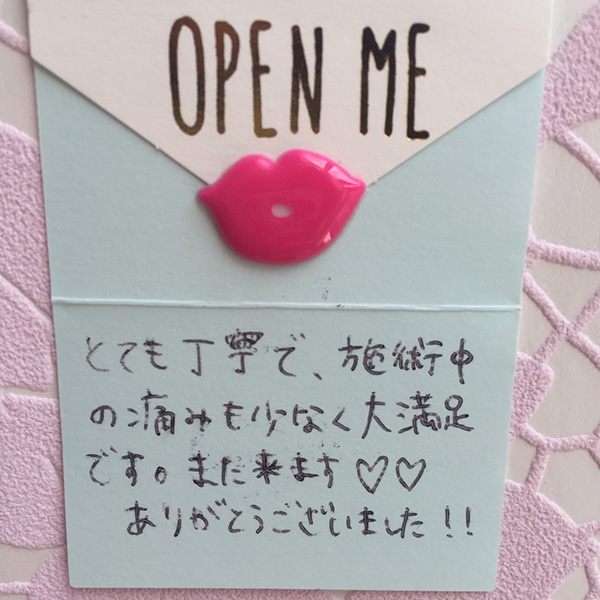 OPEN ME
とても丁寧で、施術中
の痛みも少なく大満足
です。また来ます♡♡
ありがとうございました!!